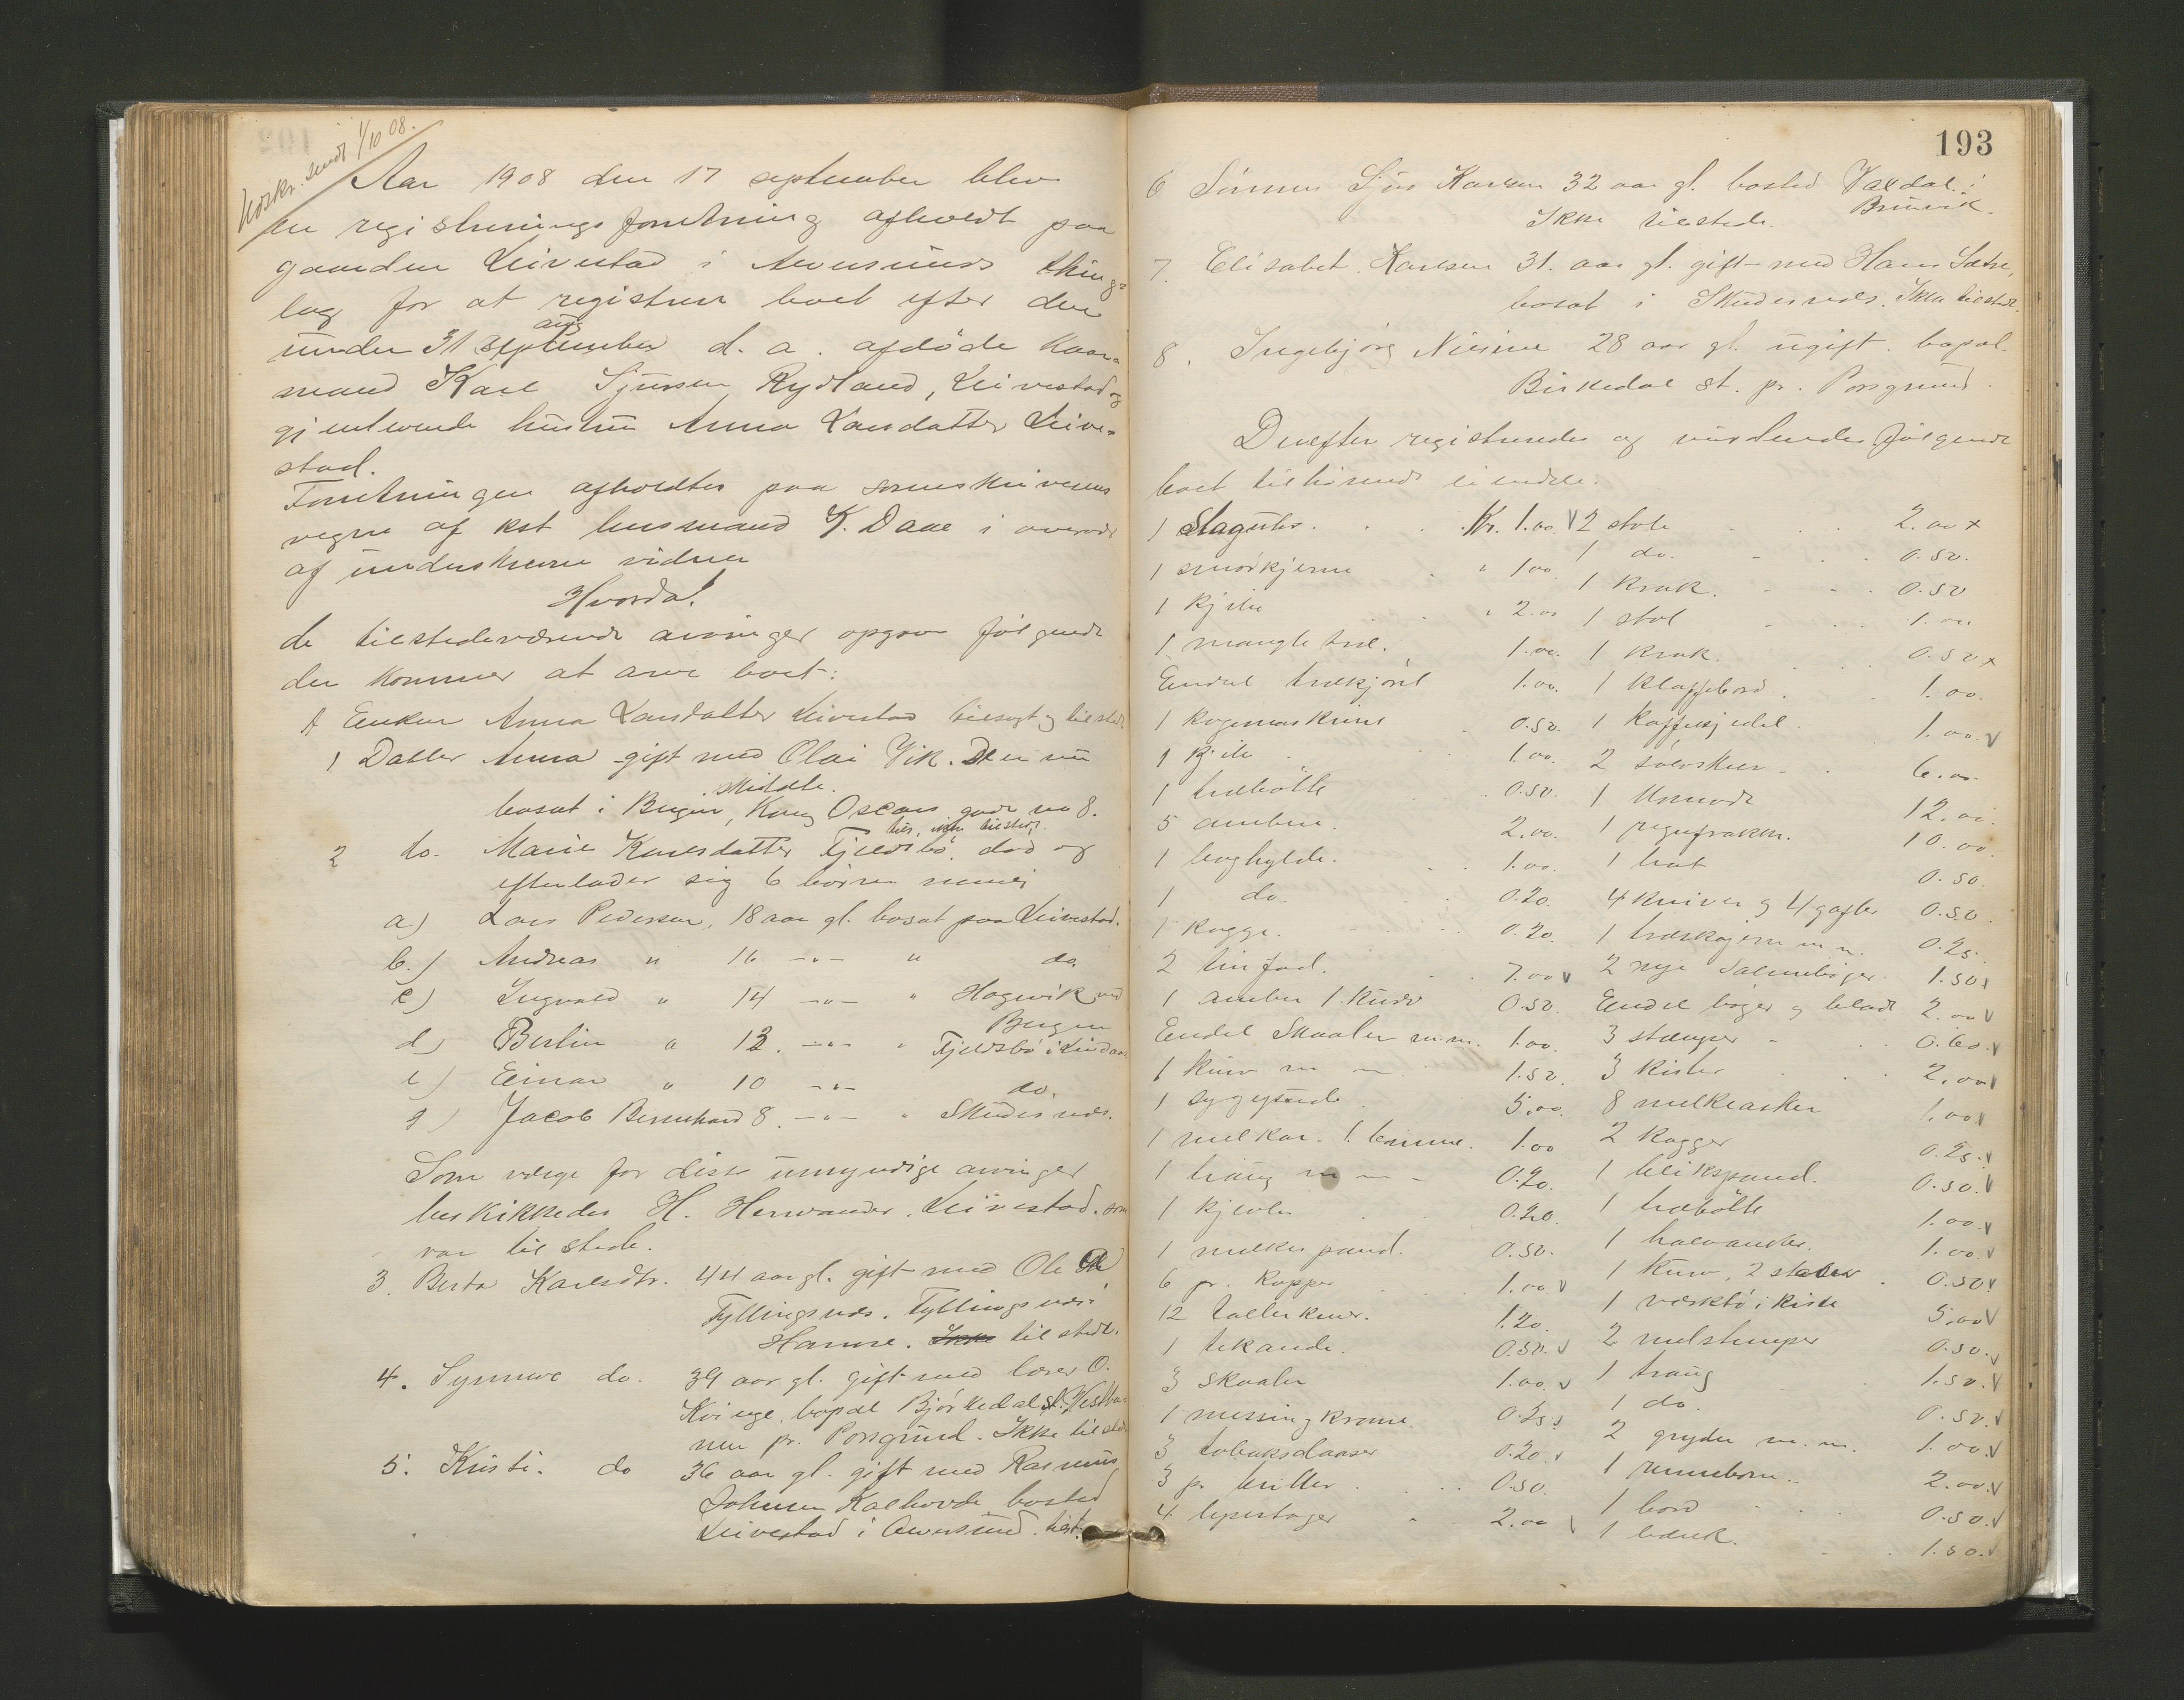 Udskr. sendt 1/10 08.
Aar 1908 den 17 september blev
en registreringsforretning afholdt paa
gaarden Leivestad i Alversunds thing-
lag for at registrere boet efter den
aug
under 31 september d. a. afdöde kaar-
mand Karl Sjursen Rydland, Leivestad og
gjenlevende hustru Anna Larsdatter Leive-
stad.
Forretningen afholdtes paa sorenskriverens
vegne af kst lensmand K. Daae i overvær
af underskrevne vidner
Hvorda!
de tilstedeværende arvinger opgav fölgende
der kommer at arve boet:
A Enken Anna Larsdatter Leivestad tilsagt og tilstede
1 Datter Anna gift med Olai Vik. Den nu
skildte.
bosat i Bergen, Kong Oscars gade no 8.
her, ikke tilstede.
2 do. Marie Karlsdatter Fjeldsbö, död og
efterlader sig 6 börn nemlig
a) Lars Pedersen, 18 aar gl. bosat paa Leivestad.
b.) Andreas " 16 -"- " do.
c) Ingvald " 14 -"- " Hagevik ved
Bergen
d) Berlin " 12. -"- " Fjeldsbö i Lindaas
e) Einar " 10 -"- do.
g) Jacob Bernhard 8. -"- " Skudesnæs.
Som værge for disse umyndige arvinger
beskikkedes H. Hervander, Leivestad. som
var til stede.
3. Berta Karlsdtr. 44 aar gl. gift med Ole
Fyllingsnes. Fyllingsnes i
Hamre. Ikke til stede.
4. Synneve do. 39 aar gl. gift med lærer O.
Kvinge, bopæl Björkedal st. Vestba-
nen pr. Porsgrund. Ikke tilstede
5. Kristi. do 36 aar gl. gift med Rasmus
Johnsen Kalhovde bosted
Leivestad i Alversund. tilst.
193
6 Sönnen Sjur Karlsen 32 aar gl. bosted Valdal i
Ikke tilstede. Bruvik.
7. Elisabet Karlsen 31. aar gl. gift med Hans Sætre,
bosat i Skudesnæs. Ikke tilstede.
8. Ingebjörg Nicoline 28 aar gl. ugift. bopæl.
Birkedal st. pr. Porsgrund.
Derefter registreredes og vurderedes fölgende
boet tilhörende eiendele.
1 Slaguhr . . . Kr. 1.00 V
1 smörkjerne " 1.00
1 Kjiste " 2.00
1 mangletræ. 1.00.
Endel trækjörel 1.00.
1 kogemaskine 0.50.
1 Kjite 1.00.
1 træbötte 0.50.
5 ambere. 2.00.
1 boghylde. 1.00.
1 do. 0.20.
1 Kagge. 0.20.
2 tinfad. 7.00 V
1 amber 1. kurv 0.50.
Endel Skaaler m.m. 1.00.
1 kurv m m 1.50.
1 sygesæde 5.00.
1 melkar. 1. tönne. 1.00
1 traug m m - 0.20.
1 kjevle 0.20.
1 melkespand. 0.50.
6 pr. Kopper 1.00 V
12 tallerkner. 1.20.
1 tekande. 0.50. V
3 Skaaler 1.00. V
1 messingkrane. 0.25.
3 tobaksdaaser 0.20. V
3 pr briller 0.50.
4 lysestager 2.00
2 stole 2.00 x
1 do. 0.50.
1 Krak. 0.50
1 stol 1.00
1 krak. 0.50 x
1 Klaffebord 1.00.
1 Kaffekjedel 1.00. V
2 sölvskeer 6.00.
1 komode 12.00.
1 regnfrakke. 10.00.
1 hat 0.50.
4 kniver og 4 gafler 0.50.
1 træskojern m m. 0.25.
2 nye Salmebøger 1.50 V
Endel böger og blade 2.00 V
3 stamper 0.60. V
3 kister 2.00 V
8 melkeasker 1.00 V
2 Kagger 0.25. V
1 blikspand. 0.50. V
1 træbötte 1.00. V
1 halvanker. 1.00. V
1 kurv, 2 stabler 0.50 V
1 værktöikiste 5.00 V
2 melstamper 0.50. V
1 traug 1.50. V
1 do. 0.50. V
2 gryder m.m. 1.00. V
1 rennebom. 2.00. V
1 bord 0.50. V
1 bænk. 1.50. V